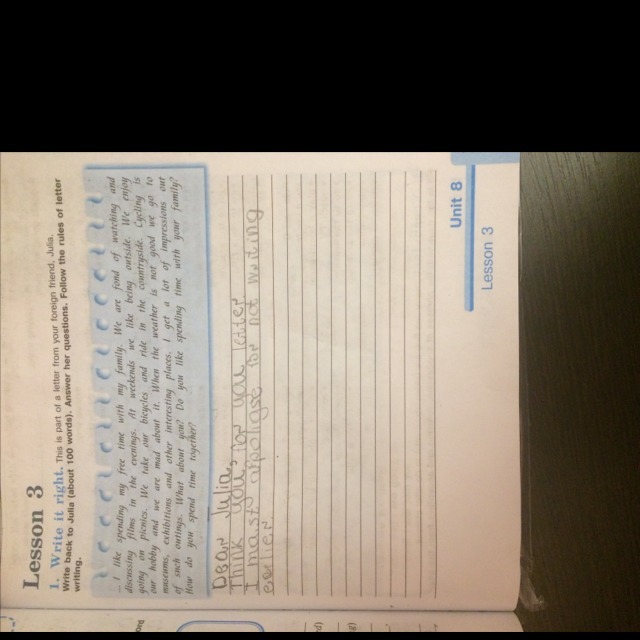 Lesson 3
1. Write it right. This is part of a letter from your foreign friend, Julia.
Write back to Julia (about 100 words). Answer her questions. Follow the rules of letter
writing.
... I like spending my free time with my family. We are fond of watching and
discussing films in the evenings. At weekends we like being outside. We enjoy
going on picnics. We take our bicycles and ride in the countryside. Cycling is
our hobby and we are mad about it. When the weather is not good we go to
museums, exhibitions and other interesting places. I get a lot of impressions out
of such outings. What about you? Do you like spending time with your family?
How do you spend time together?
Dear Julia,
Think you for your letter
I mast apoligise for not writing
earlier
Unit 8
Lesson 3